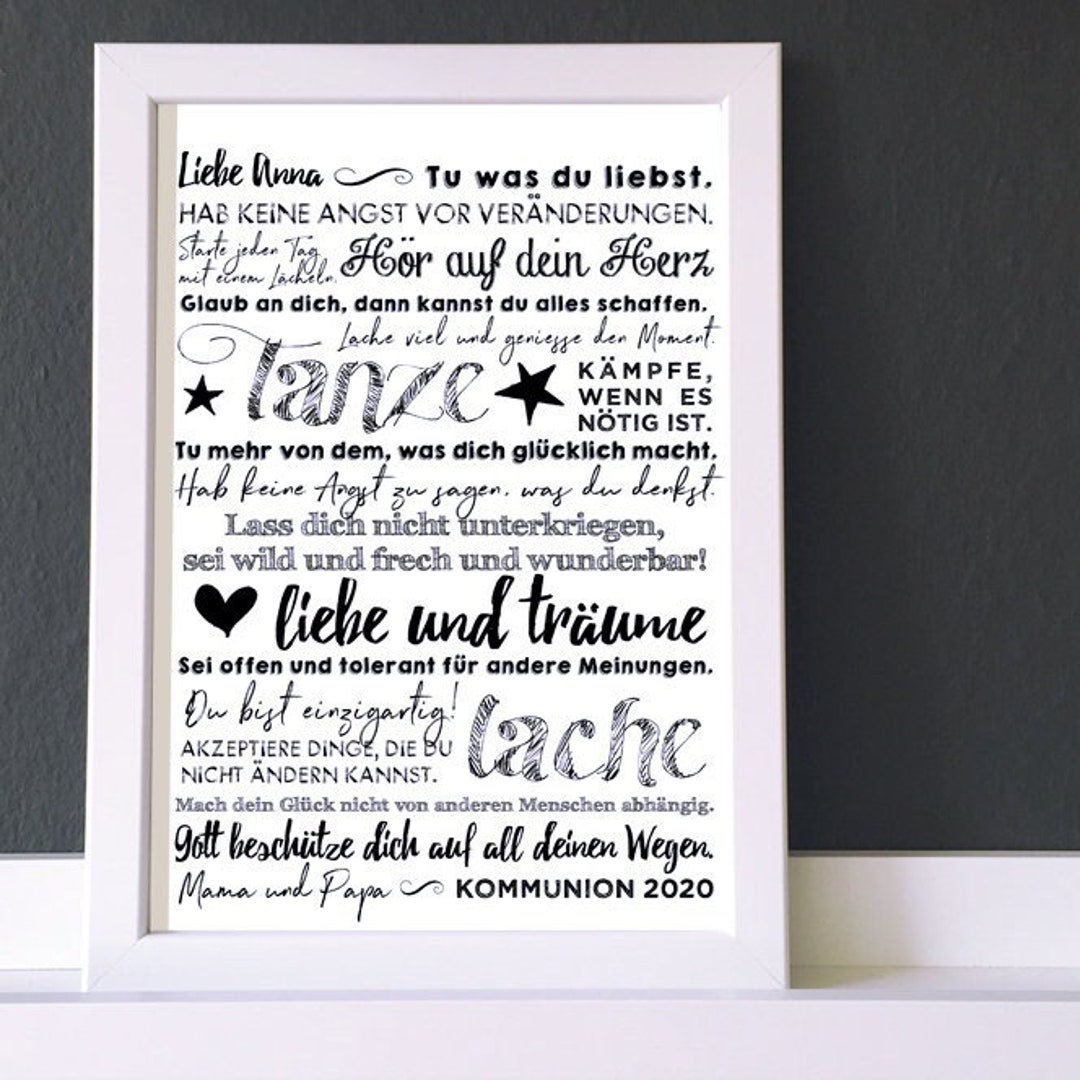 Liebe Anna Tu was du liebst.
HAB KEINE ANGST VOR VERÄNDERUNGEN.
Starte jeden Tag
mit einem Lächeln.
Hör auf dein Herz
Glaub an dich, dann kannst du alles schaffen.
Lache viel und geniesse den Moment.
Tanze
KÄMPFE,
WENN ES
NÖTIG IST.
Tu mehr von dem, was dich glücklich macht.
Hab keine Angst zu sagen, was du denkst.
Lass dich nicht unterkriegen,
sei wild und frech und wunderbar!
liebe und träume
Sei offen und tolerant für andere Meinungen.
Du bist einzigartig!
AKZEPTIERE DINGE, DIE DU
NICHT ÄNDERN KANNST.
lache
Mach dein Glück nicht von anderen Menschen abhängig.
Gott beschütze dich auf all deinen Wegen.
Mama und Papa KOMMUNION 2020